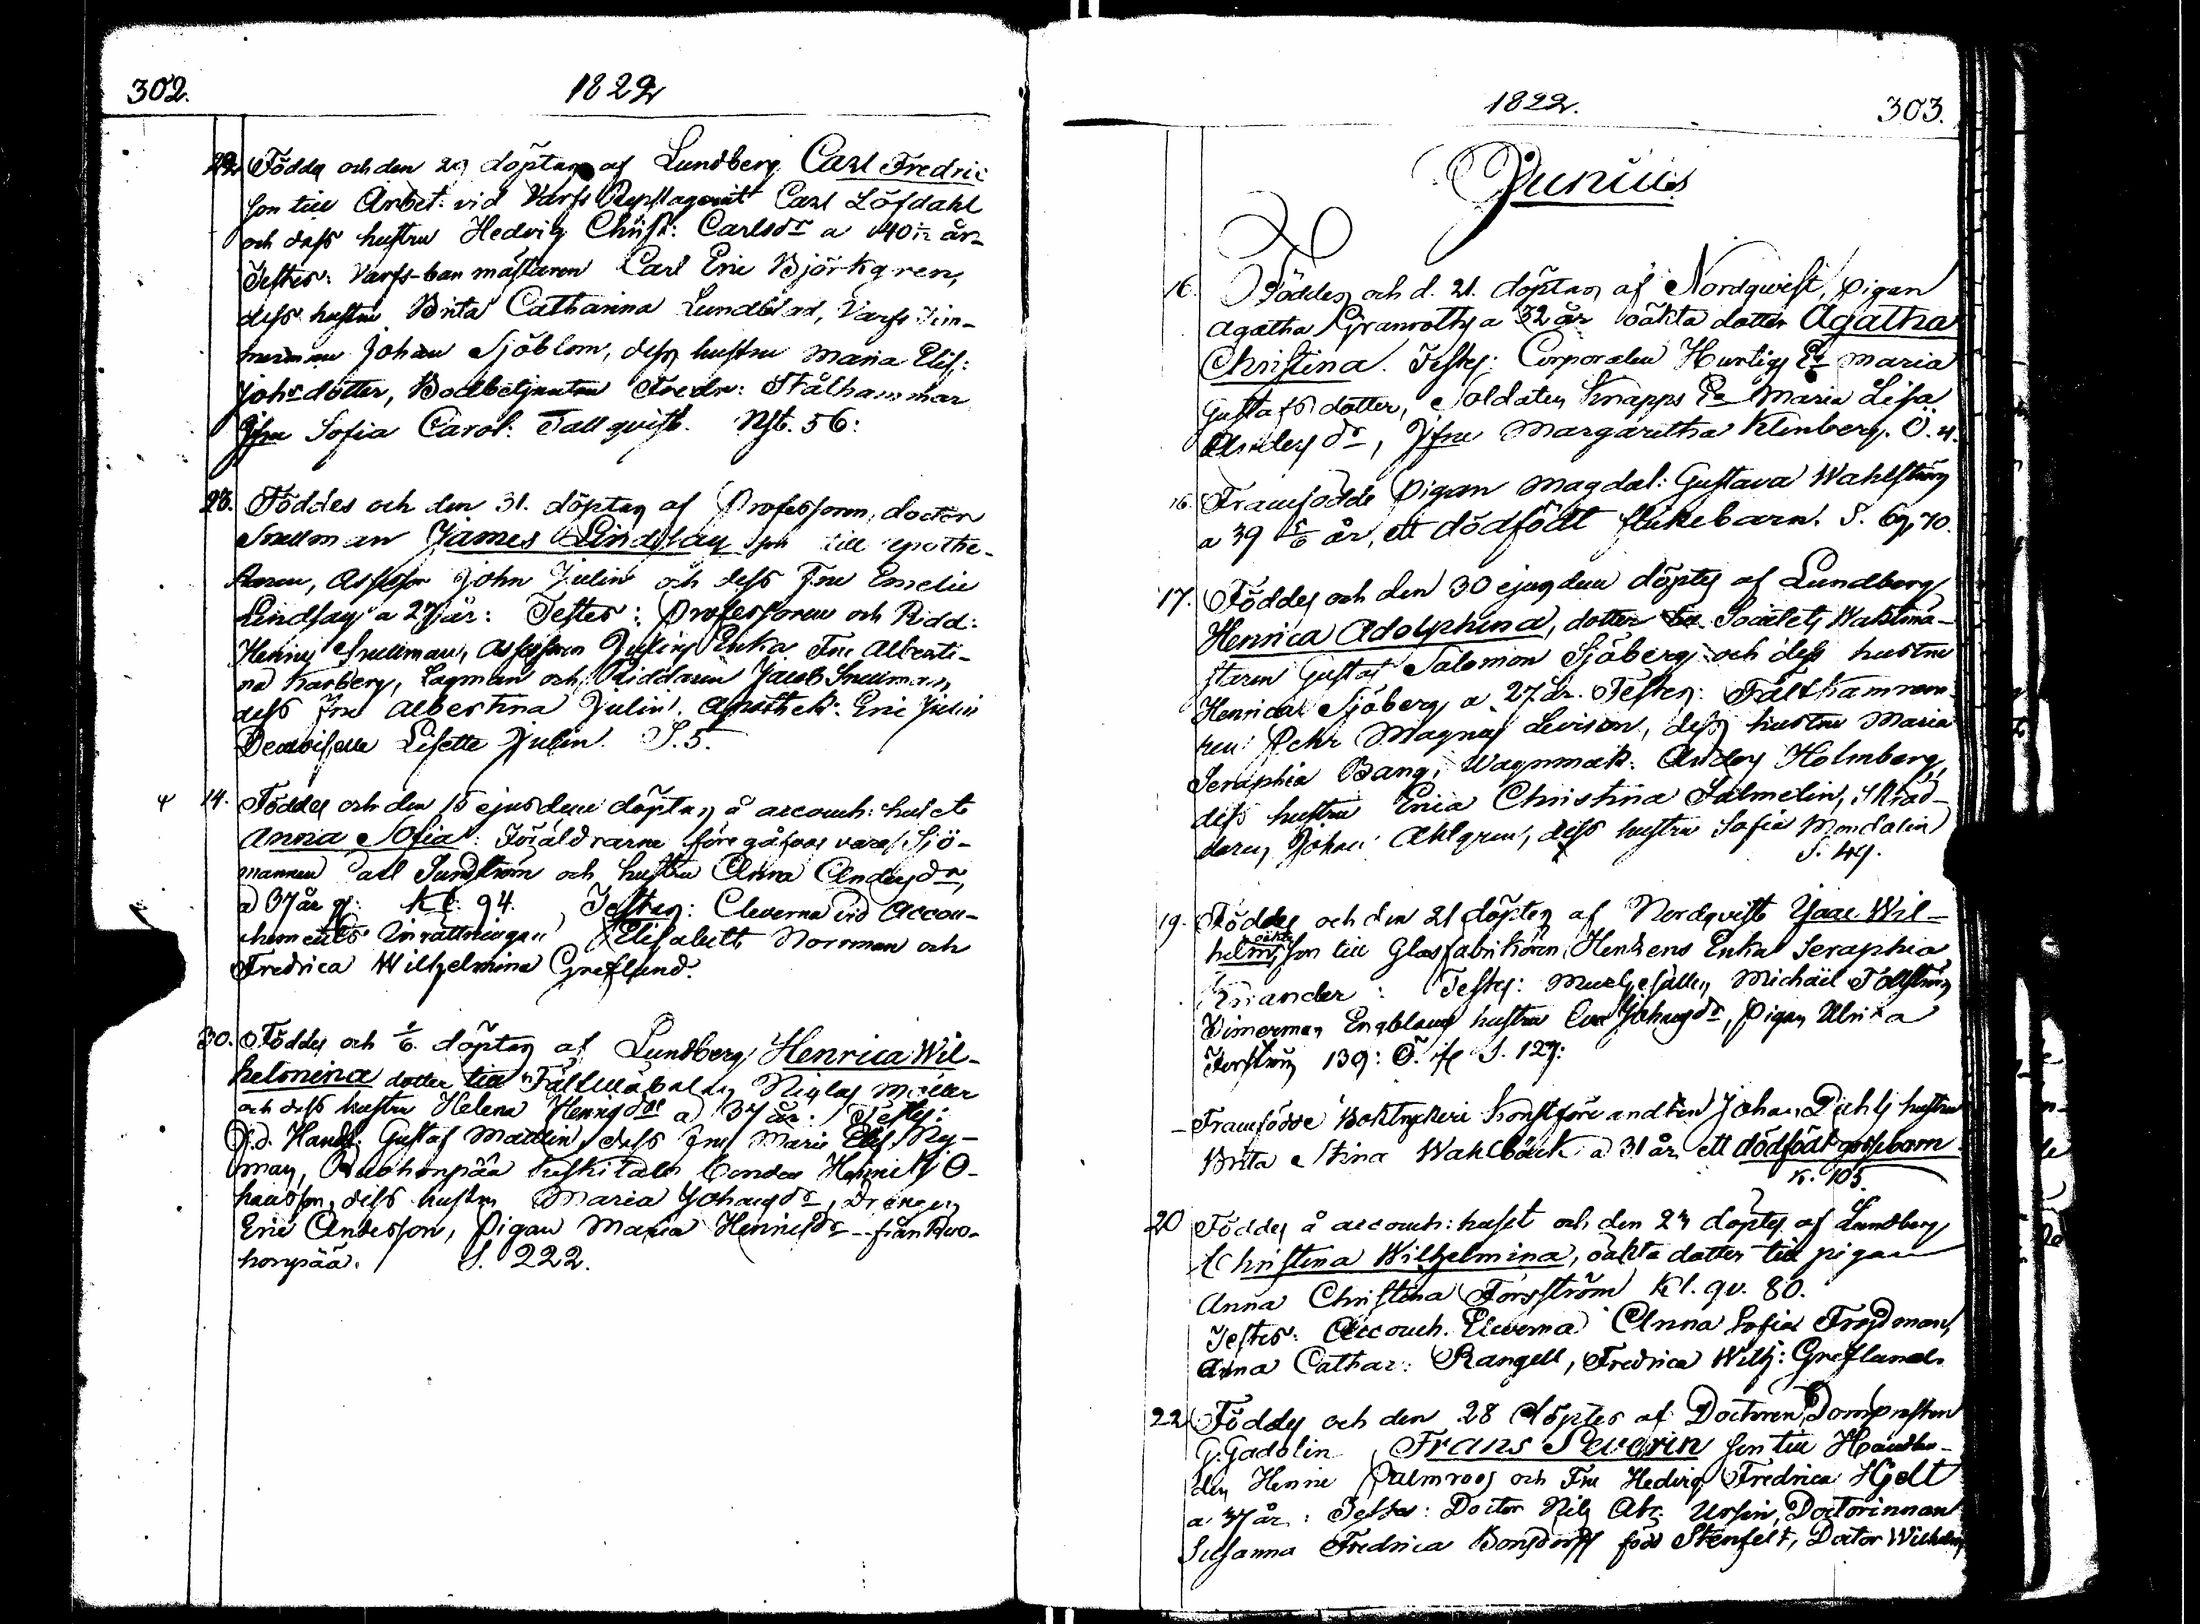 302.
1822
22. Föddes och den 29 döptes af Lundberg Carl Fredric
son till Arbet. vid Varfs Repslageriet Carl Löfdahl
och dess hustru Hedvig Christ: Carlsdr a 40 år
Testes: Varfs-ban mästaren Carl Eric Björkgren,
dess hustru Brita Catharina Lundblad, Varfs Tim-
merman Johan Sjöblom, dess hustru Maria Elis:
Johsdotter, Bodbetjenten Fredr: Stålhammar
Jfru Sofia Carol: Tallqvist. Nst. 56:
23. Föddes och den 31. döptes af Professoren, doctor
Snellman James Lindsay son till Apothe-
karen, Assessor John Julin och dess Fru Emelie
Lindsay a 27 år: Testes: Professoren och Ridd:
Henric Snellman, Assessoren Julins Enka Fru Alberti-
na Karberg, Lagman och Riddaren Jacob Snellman,
dess Fru Albertina Julin. Apothek: Eric Julin
Demoiselle Lisette Julin. S. 5.
14. Föddes och den 15 ejusdem döptes å accouch: huset
Anna Sofia. Föräldrarne föregåfvos vara Sjö-
mannen Carl Sundström och hustru Anna Andersdr,
a 37 år gl: Kl. 94. Testes: Eleverna vid Accou-
chements Inrättningen Elisabeth Norrman och
Fredrica Wilhelmina Greflund.
30. Föddes och 1/6. döptes af Lundberg Henrica Wil-
helmina dotter till Fältväbelen Niclas Möller
och dess hustru Helena Henrigsdr a 37 år. Testes:
F.d. Handl. Gustaf Mattlin, dess Fru Maria Elis. Ny-
man, Kuohonpää bonden Henric
dess hustru Maria Johansdr, Drängen
Eric Andersson, Pigan Maria Henricsdr från Kuo-
honpää. S. 222.
1822.
303.
Junius
16. Föddes och d. 21. döptes af Nordqvist, pigan
Agatha Granroths a 32 år oäkta dotter Agatha
Christina. Testes: Corporalen Hurtigs Ea Maria
Gustafsdotter, Soldaten Knapps Ea Maria Lisa
Andersdr, Jfru Margaretha Klinberg. Ö. 4.
16. Framfödde Pigan Magdal: Gustava Wahlström
a 39 5/6 år, ett dödfödt flickebarn. S. 69, 70.
17. Föddes och den 30 ejusdem döptes af Lundberg
Henrica Adolphina, dotter Societets Waktmä-
staren Gustaf Salomon Sjöberg och dess hustru
Henrica Sjöberg a 27 år. Testes: Fältkamrera-
ren Pehr Magnus Levison, dess hustru Maria
Seraphia Bang, Wagnmak: Anders Holmberg,
dess hustru Erica Christina Salmelin, Skräd-
daren Johan Ahlgren, dess hustru Sofia Mondalin
S. 49.
19. Föddes och den 21 döptes af Nordqvist Isac Wil-
helm, oäkta son till Glasfabrikören Henzens Enka Seraphia
Knander: Testes: Murgesällen Michaël
Timerman Engbloms hustru Eva Johansdr, Pigan Ulrica
139: Ö. S. 129:
– Framfödde Boktryckeri Konstföre andten Johan Dahls hustru
Brita Stina Wahlbäck a 31 år ett dödfödt gossebarn
K. 105.
20 Föddes å accouch: huset och den 23 döptes af Lundberg
Christina Wilhelmina, oäkta dotter till pigan
Anna Christina Forsström Kl. qv. 80.
Testes: Accouch. Eleverna Anna Sofia Fröjdman,
Anna Cathar: Rangell, Fredrica Wilh: Greflund.
22 Föddes och den 28 döptes af Doctoren, Domprosten
G. Gadolin Frans Severin son till Handlan-
den Henric Palmroos och Fru Hedvig Fredrica Hjelt
a 37 år: Testes: Doctor Nils Abr. Ursin, Doctorinnan
Susanna Fredrica Bonsdorff född Stenfelt, Doctor Wilhelm